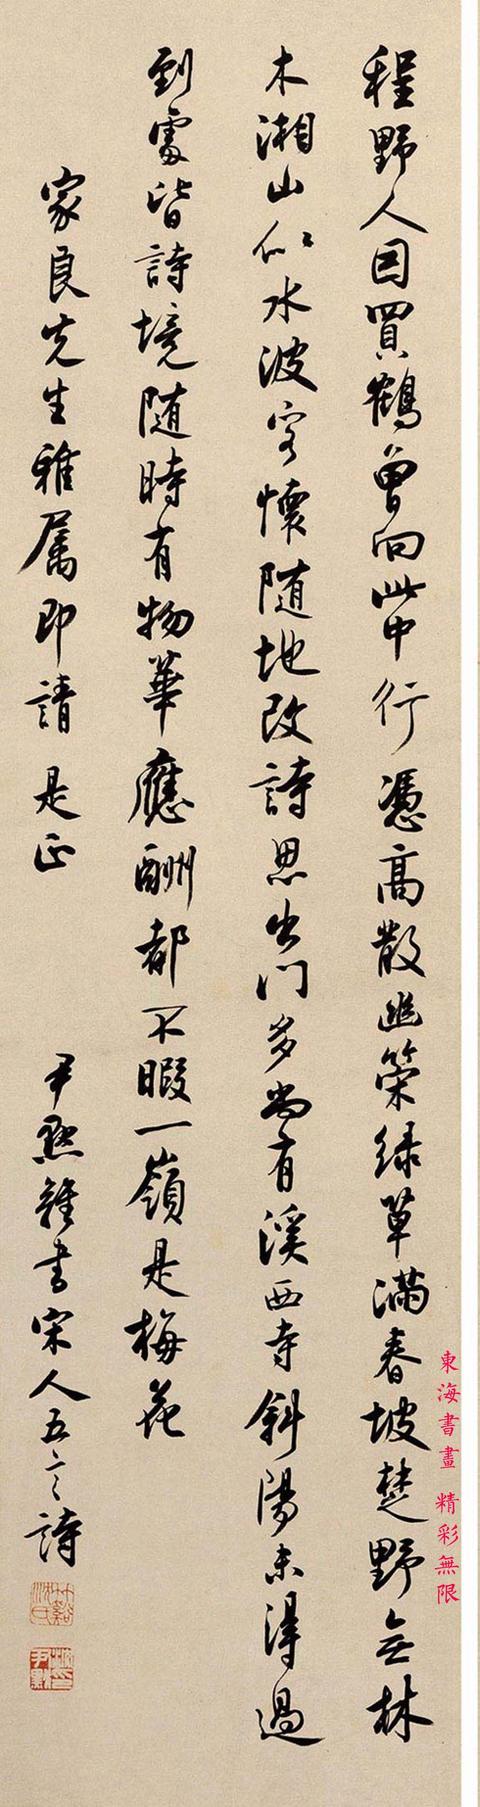 程野人因買鶴曾向此中行憑高散幽策綠草滿春坡楚野無林
木湘山似水波客懷隨地改詩思出門多尚有溪西寺斜陽未得過
到處皆詩境随時有物華應酬都不暇一嶺是梅花
家良先生雅屬即請 是正
尹默雜書宋人五言詩
竹谿沈氏
沈尹默印
東海書畫 精彩無限